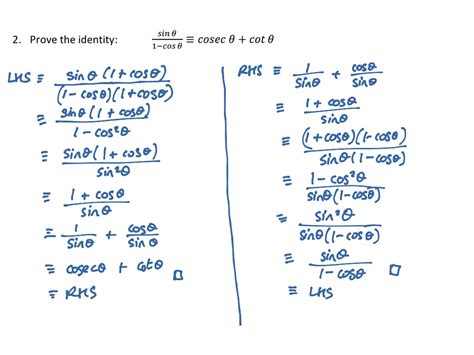 2. Prove the identity: sin θ / 1−cos θ ≡ cosec θ + cot θ
LHS ≡ sinθ(1+cosθ) / (1−cosθ)(1+cosθ)
≡ sinθ(1+cosθ) / 1−cos²θ
≡ sinθ(1+cosθ) / sin²θ
≡ 1+cosθ / sinθ
≡ 1/sinθ + cosθ/sinθ
≡ cosecθ + cotθ □
≡ RHS
RHS ≡ 1/sinθ + cosθ/sinθ
≡ 1+cosθ / sinθ
≡ (1+cosθ)(1−cosθ) / sinθ(1−cosθ)
≡ 1−cos²θ / sinθ(1−cosθ)
≡ sin²θ / sinθ(1−cosθ)
≡ sinθ / 1−cosθ □
≡ LHS